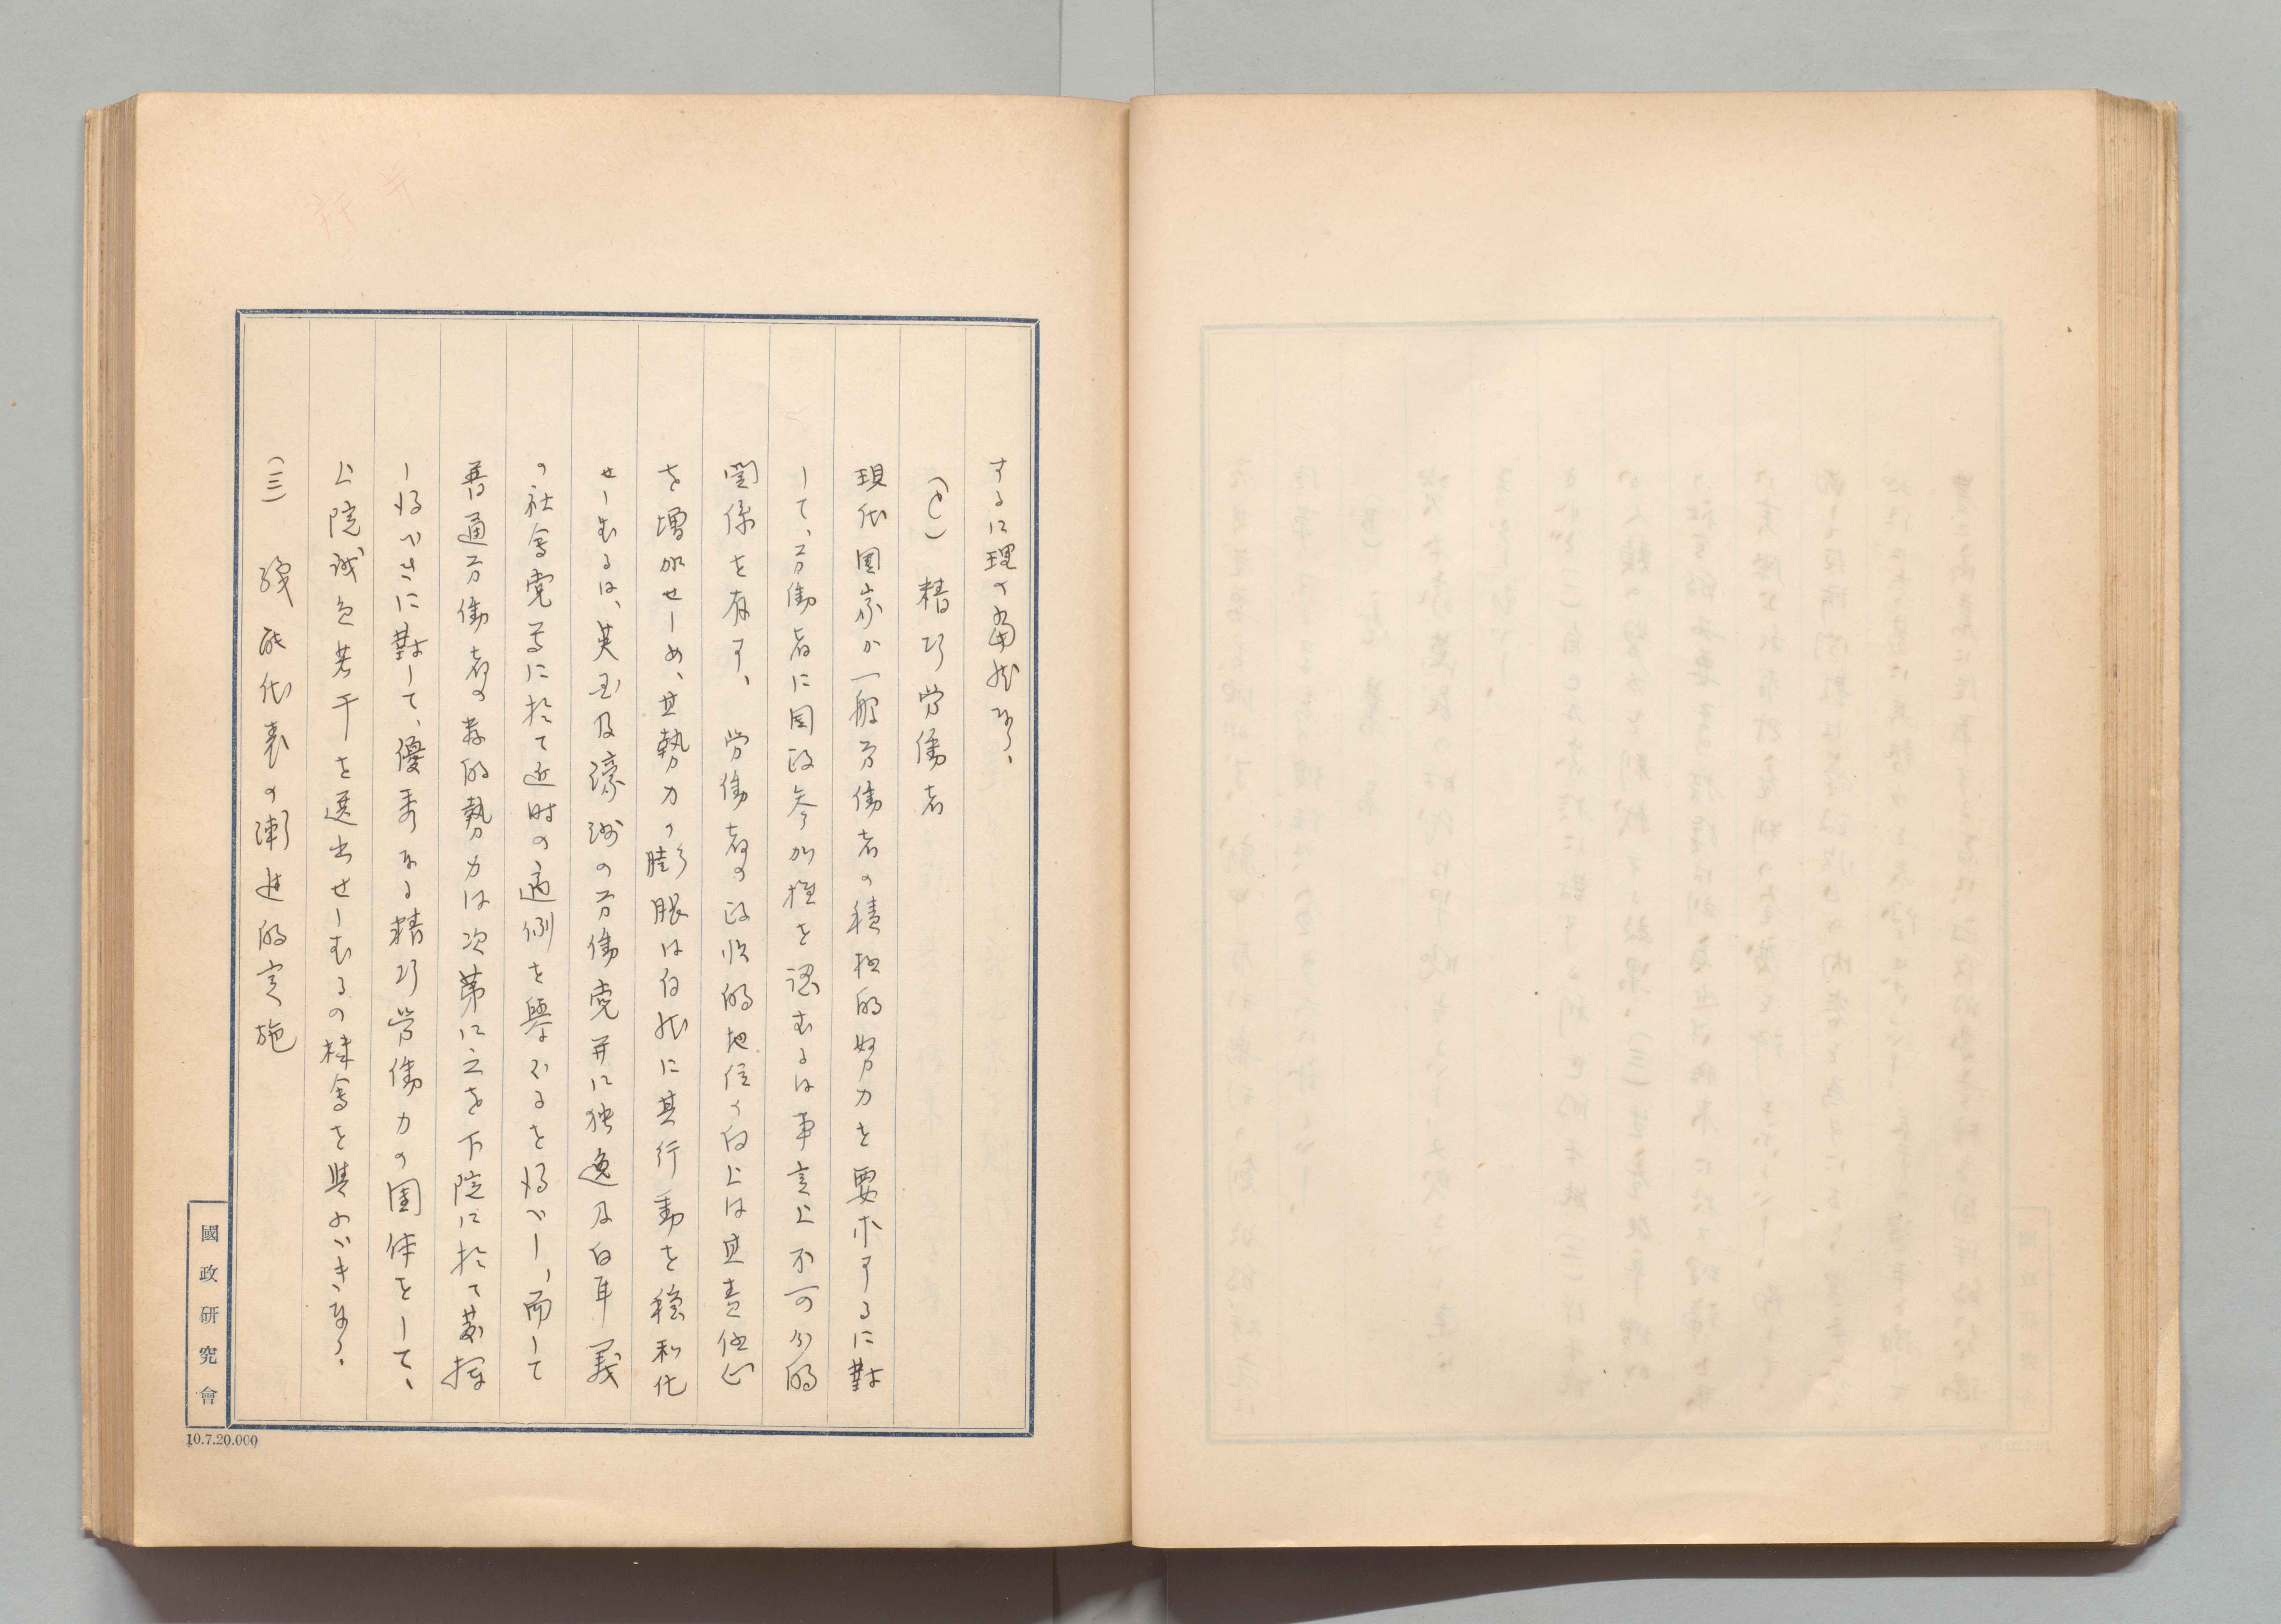 するに理の當然なり、
(と) 精巧労働者
現代国家か一般労働者の積極的努力を要求するに對
して、労働者に国政参加権を認むるは事実上不可分的
関係を有す、労働者の政治的地位の向上は其責任心
を増加せしめ、其勢力の膨脹は自然に其行動を穏和化
せしむるは、英国及濠洲の労働党并に独逸及白耳義
の社會党等に於て近時の適例を舉ぐるを得べし、而して
普通労働者の数的勢力は次第に之を下院に於て発揮
し得べきに對して、優秀なる精巧労働力の団体をして、
上院議員若干を選出せしむるの機會を與ふべきなり、
(三) 職能代表の漸進的実施
國政研究會
10.7.20.000